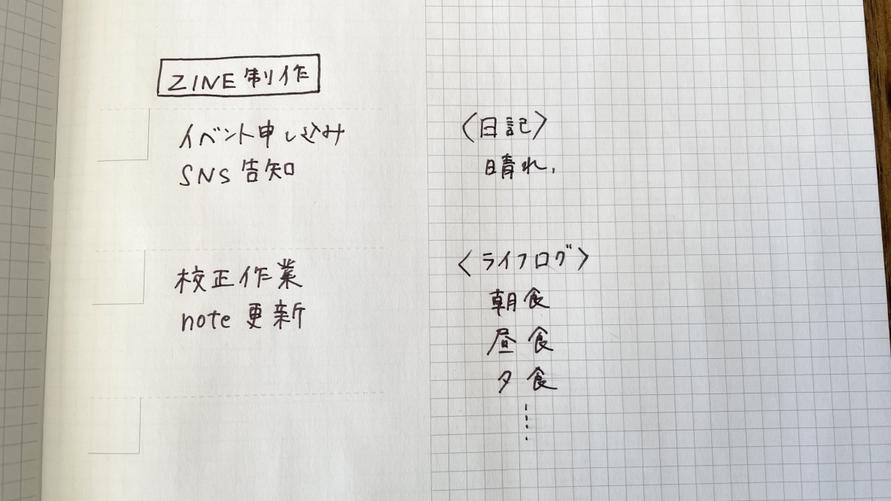 ZINE制作
イベント申し込み
SNS告知
校正作業
note更新
〈日記〉
晴れ.
〈ライフログ〉
朝食
昼食
夕食